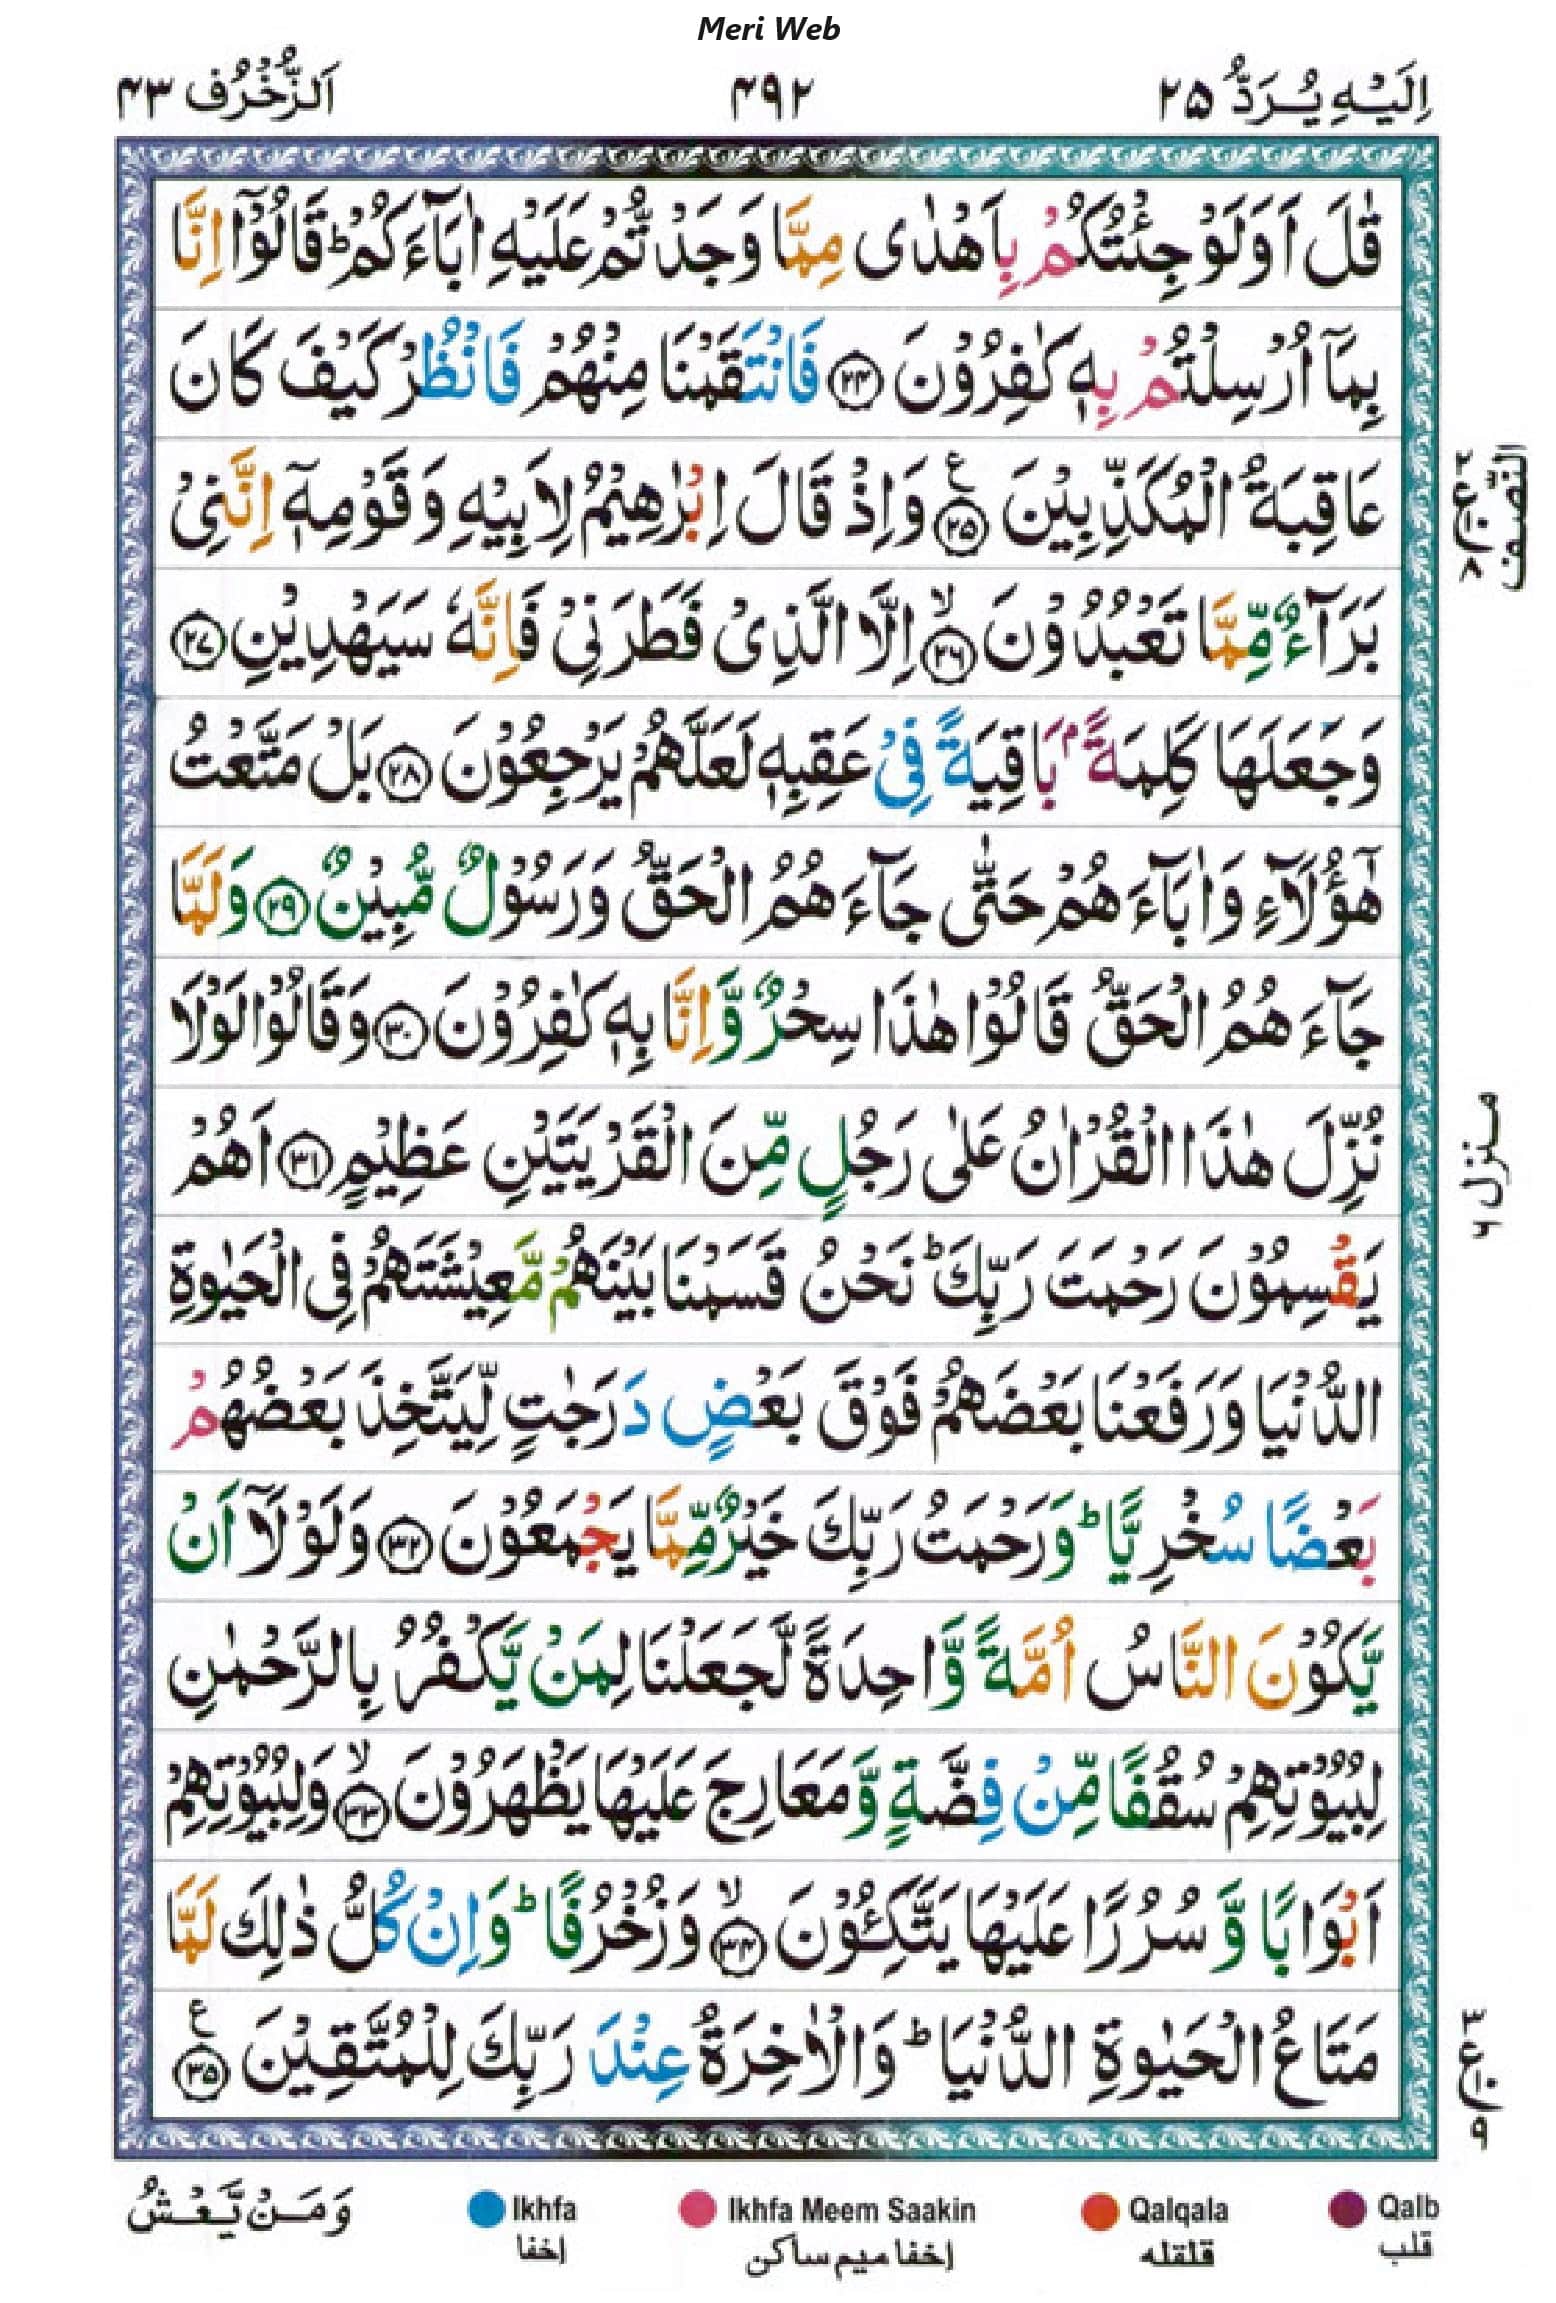 Meri Web
اِلَیْهِ یُرَدُّ ۲۵
۴۹۲
اَلزُّخْرُف ۴۳
قٰلَ اَوَلَوْ جِئْتُكُمْ بِاَهْدٰی مِمَّا وَجَدْتُّمْ عَلَیْهِ اٰبَآءَكُمْ ؕ قَالُوْۤا اِنَّا
بِمَاۤ اُرْسِلْتُمْ بِهٖ كٰفِرُوْنَ ﴿۲۴﴾ فَانْتَقَمْنَا مِنْهُمْ فَانْظُرْ كَیْفَ كَانَ
عَاقِبَةُ الْمُكَذِّبِیْنَ ﴿۲۵﴾ ع وَاِذْ قَالَ اِبْرٰهِیْمُ لِاَبِیْهِ وَقَوْمِهٖۤ اِنَّنِیْ
بَرَآءٌ مِّمَّا تَعْبُدُوْنَ ﴿ۙ۲۶﴾ اِلَّا الَّذِیْ فَطَرَنِیْ فَاِنَّهٗ سَیَهْدِیْنِ ﴿۲۷﴾
وَجَعَلَهَا كَلِمَةًۢ بَاقِیَةً فِیْ عَقِبِهٖ لَعَلَّهُمْ یَرْجِعُوْنَ ﴿۲۸﴾ بَلْ مَتَّعْتُ
هٰۤؤُلَآءِ وَاٰبَآءَهُمْ حَتّٰی جَآءَهُمُ الْحَقُّ وَرَسُوْلٌ مُّبِیْنٌ ﴿۲۹﴾ وَلَمَّا
جَآءَهُمُ الْحَقُّ قَالُوْا هٰذَا سِحْرٌ وَّاِنَّا بِهٖ كٰفِرُوْنَ ﴿۳۰﴾ وَقَالُوْا لَوْلَا
نُزِّلَ هٰذَا الْقُرْاٰنُ عَلٰی رَجُلٍ مِّنَ الْقَرْیَتَیْنِ عَظِیْمٍ ﴿۳۱﴾ اَهُمْ
یَقْسِمُوْنَ رَحْمَتَ رَبِّكَ ؕ نَحْنُ قَسَمْنَا بَیْنَهُمْ مَّعِیْشَتَهُمْ فِی الْحَیٰوةِ
الدُّنْیَا وَرَفَعْنَا بَعْضَهُمْ فَوْقَ بَعْضٍ دَرَجٰتٍ لِّیَتَّخِذَ بَعْضُهُمْ
بَعْضًا سُخْرِیًّا ؕ وَرَحْمَتُ رَبِّكَ خَیْرٌ مِّمَّا یَجْمَعُوْنَ ﴿۳۲﴾ وَلَوْلَاۤ اَنْ
یَّكُوْنَ النَّاسُ اُمَّةً وَّاحِدَةً لَّجَعَلْنَا لِمَنْ یَّكْفُرُ بِالرَّحْمٰنِ
لِبُیُوْتِهِمْ سُقُفًا مِّنْ فِضَّةٍ وَّمَعَارِجَ عَلَیْهَا یَظْهَرُوْنَ ﴿ۙ۳۳﴾ وَلِبُیُوْتِهِمْ
اَبْوَابًا وَّسُرُرًا عَلَیْهَا یَتَّكِـُٔوْنَ ﴿ۙ۳۴﴾ وَزُخْرُفًا ؕ وَاِنْ كُلُّ ذٰلِكَ لَمَّا
مَتَاعُ الْحَیٰوةِ الدُّنْیَا ؕ وَالْاٰخِرَةُ عِنْدَ رَبِّكَ لِلْمُتَّقِیْنَ ﴿۳۵﴾ ع
النِّصْف
۲ ع ۸
منزل ۶
۳ ع ۹
وَمَنْ یَّعْشُ
Ikhfa Ikhfa Meem Saakin Qalqala Qalb
اخفا اخفا میم ساکن قلقله قلب